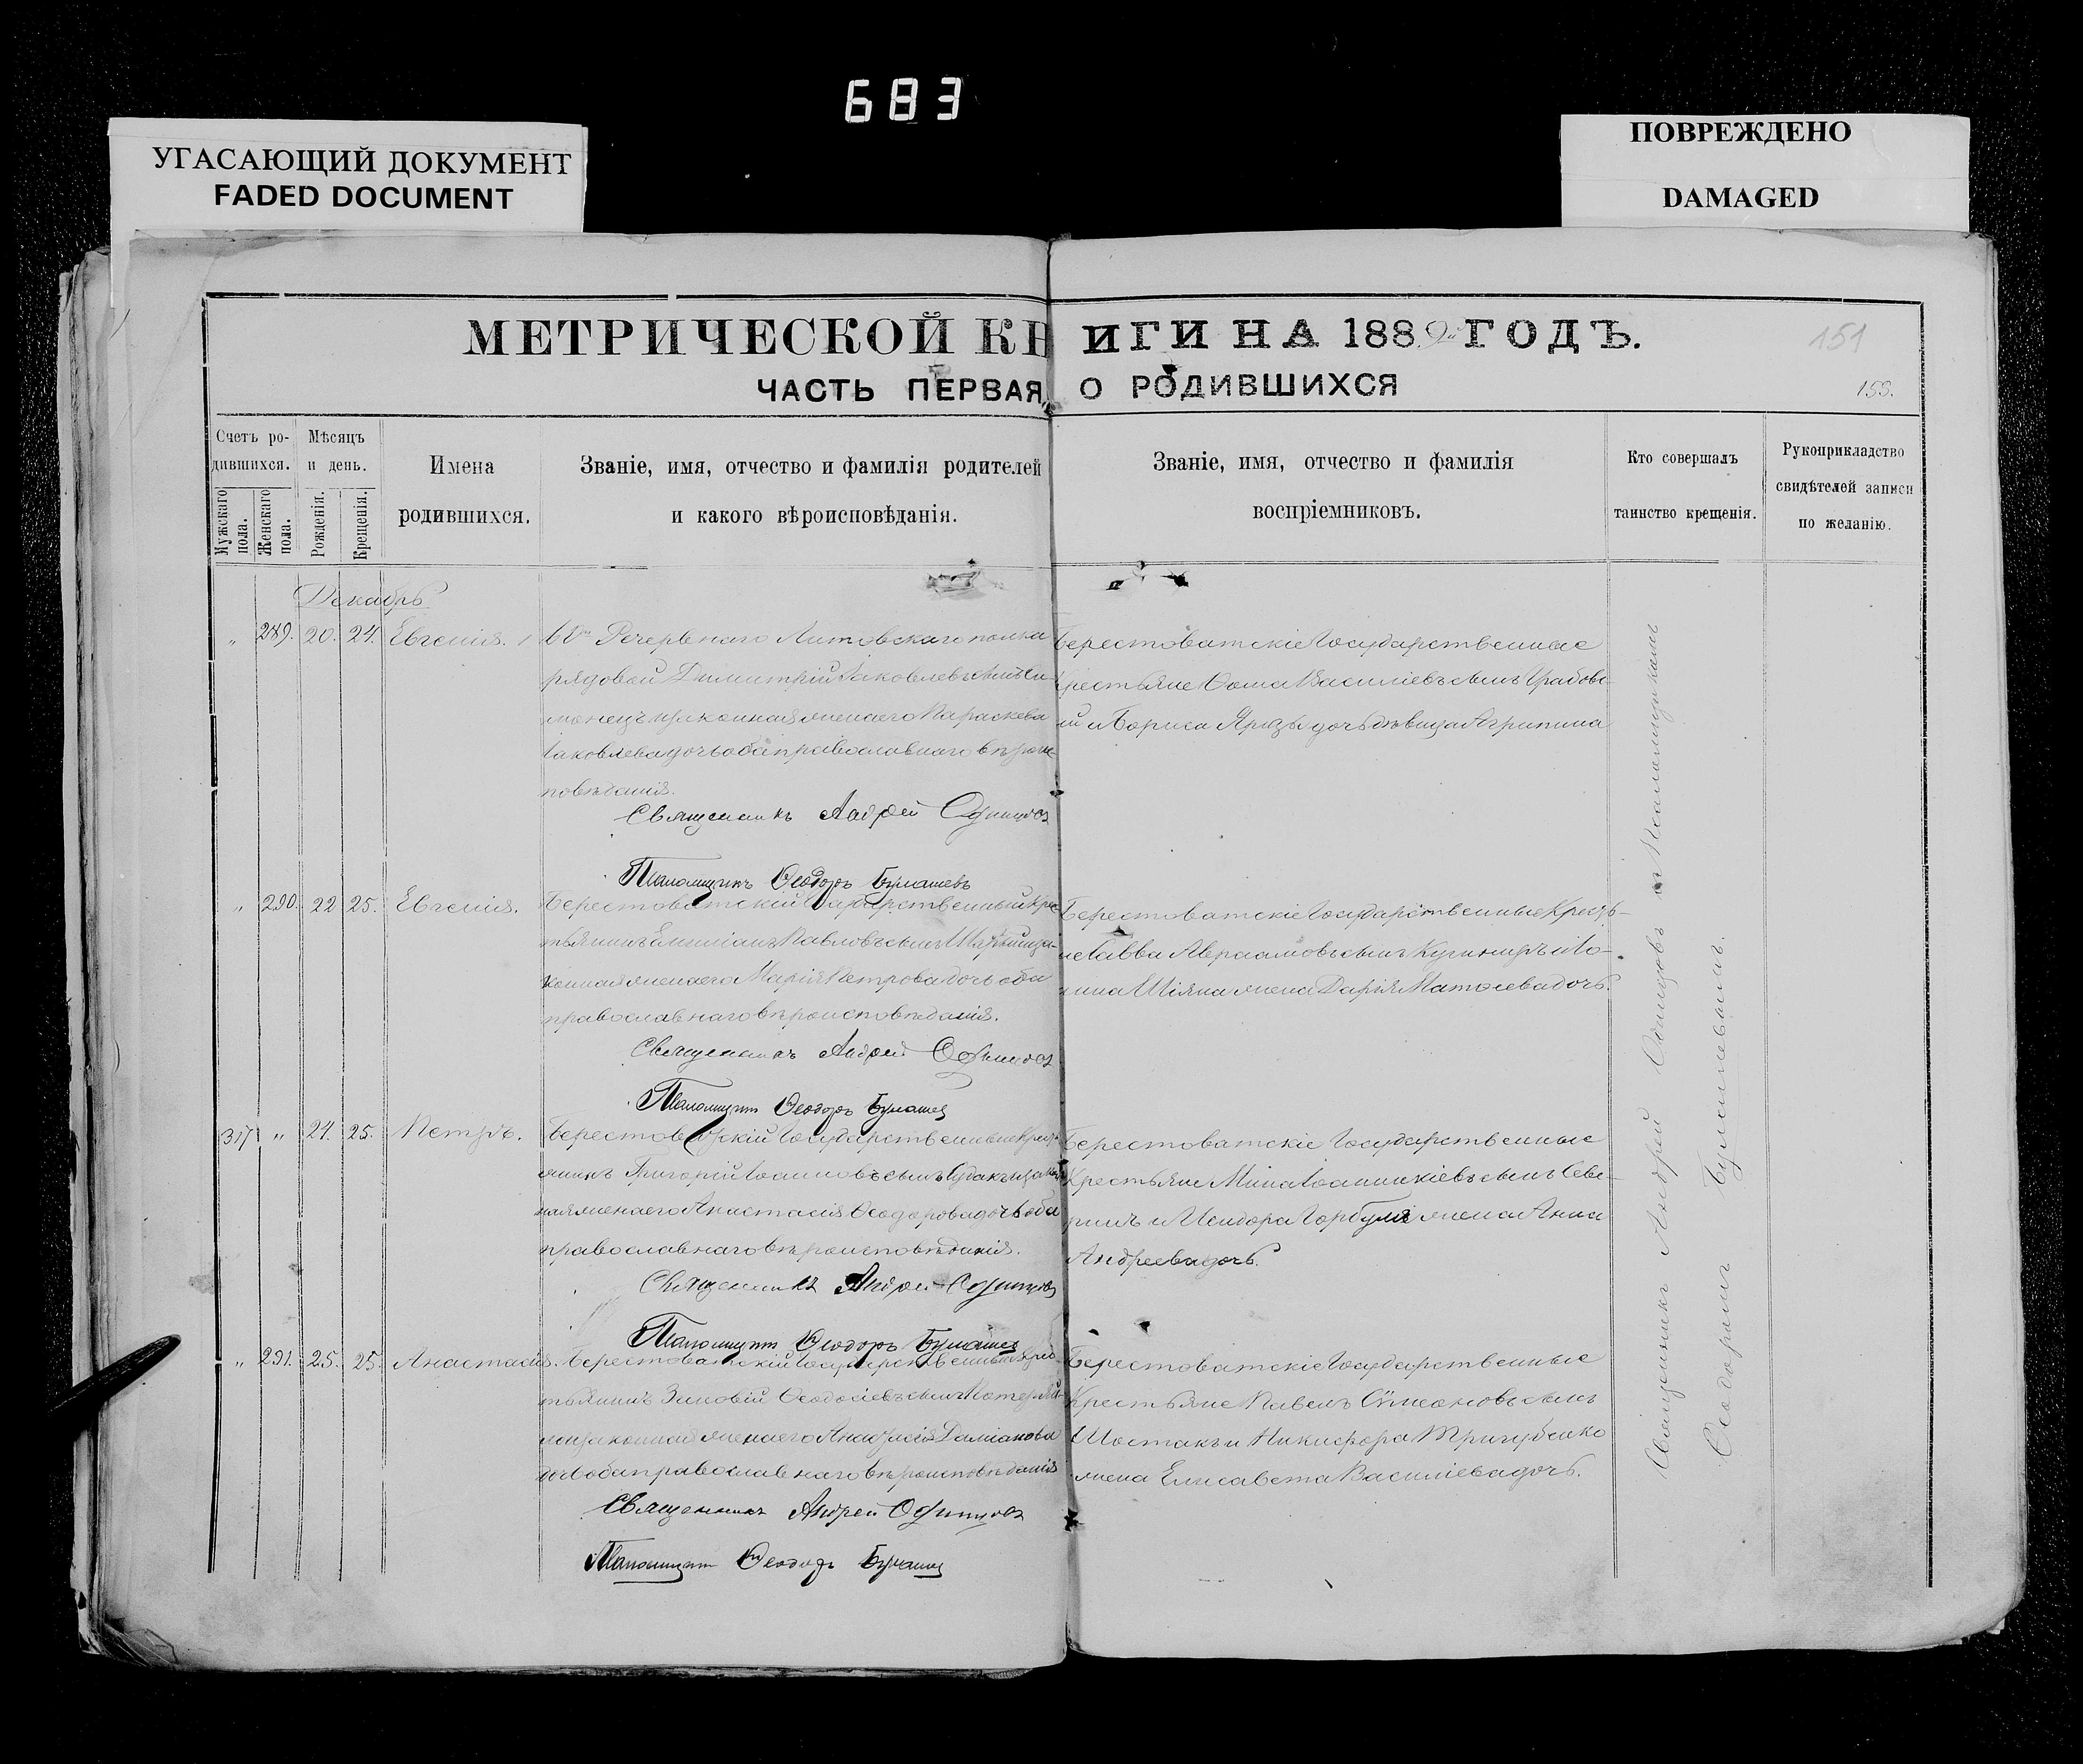 683
УГАСАЮЩИЙ ДОКУМЕНТ
FADED DOCUMENT
ПОВРЕЖДЕНО
DAMAGED
МЕТРИЧЕСКОЙ КНИГИ НА 1889й ГОДЪ.
151
ЧАСТЬ ПЕРВАЯ, О РОДИВШИХСЯ
153.
Счетъ родившихся.
Мужскаго пола.
Женскаго пола.
Мѣсяцъ и день.
Рожденія.
Крещенія.
Имена
родившихся.
Званіе, имя, отчество и фамилія родителей
и какого вѣроисповѣданія.
Званіе, имя, отчество и фамилія
воспріемниковъ.
Кто совершалъ
таинство крещенія.
Рукоприкладство
свидѣтелей записи
по желанію.
Декабрь
" 289. 20. 24. Евгенія.
Литовскаго полка
рядовой Димитрій Іаковлевъ сынъ
законная жена его Параскева
Іаковлева дочь оба православнаго вѣроис-
повѣданія.
Священникъ Андрей Одинцовъ
Псаломщикъ Ѳеодоръ Булашевъ
Берестоватскіе Государственные
Крестьяне Ѳома Василіевъ сынъ
и Бориса дочь дѣвица Агрипина
" 290. 22 25. Евгенія.
Берестоватскій Государственный Крес-
тьянинъ Емиліанъ Павловъ сынъ
конная жена его Марія Петрова дочь оба
православнаго вѣроисповѣданія.
Священникъ Андрей Одинцовъ
Псаломщикъ Ѳеодоръ Булашевъ
Берестоватскіе Государственные Кресть-
не Савва Авраамовъ сынъ
жена Дарія Матѳеева дочь.
317 " 24. 25. Петръ.
Государственный Кресть-
янинъ Григорій Іоанновъ сынъ
ная жена его Анастасія Ѳеодорова дочь оба
православнаго вѣроисповѣданія.
Священникъ Андрей Одинцовъ
Псаломщикъ Ѳеодоръ Булашевъ
Берестоватскіе Государственные
Крестьяне Мина Іоанникіевъ сынъ Севе-
ринъ и Исидора Горбуля жена Анна
Андреева дочь.
" 291. 25. 25. Анастасія.
Берестоватскій Государственный Крес-
тьянинъ Зиновій Ѳеодосіевъ сынъ
законная жена его Анастасія Даміанова
дочь оба православнаго вѣроисповѣданія
Священникъ Андрей Одинцовъ
Псаломщикъ Ѳеодоръ Булашевъ
Берестоватскіе Государственные
Крестьяне Павелъ Симеоновъ сынъ
Шостакъ и Никифора Тригубенко
жена Елисавета Василіева дочь.
Священникъ Андрей Одинцовъ съ Псаломщикомъ
Ѳеодоромъ Булашевымъ.